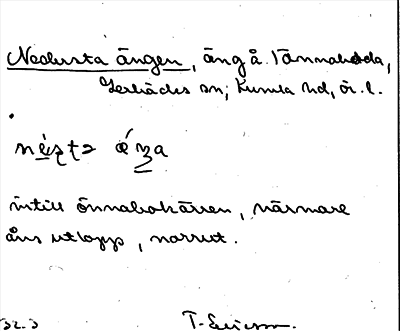 Nedersta ängen, äng å. Tönnaboda,
Lerbäcks sn; Kumla hd, ör. l.
intill önnabokärren, närmare
åns utlopp, norrut.
T. Ericson.